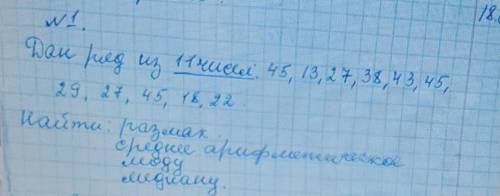 18.
№1.
Дан ряд из 11 чисел: 45, 13, 27, 38, 43, 45,
29, 27, 45, 18, 22
Найти: размах
среднее арифметическое
моду
медиану.